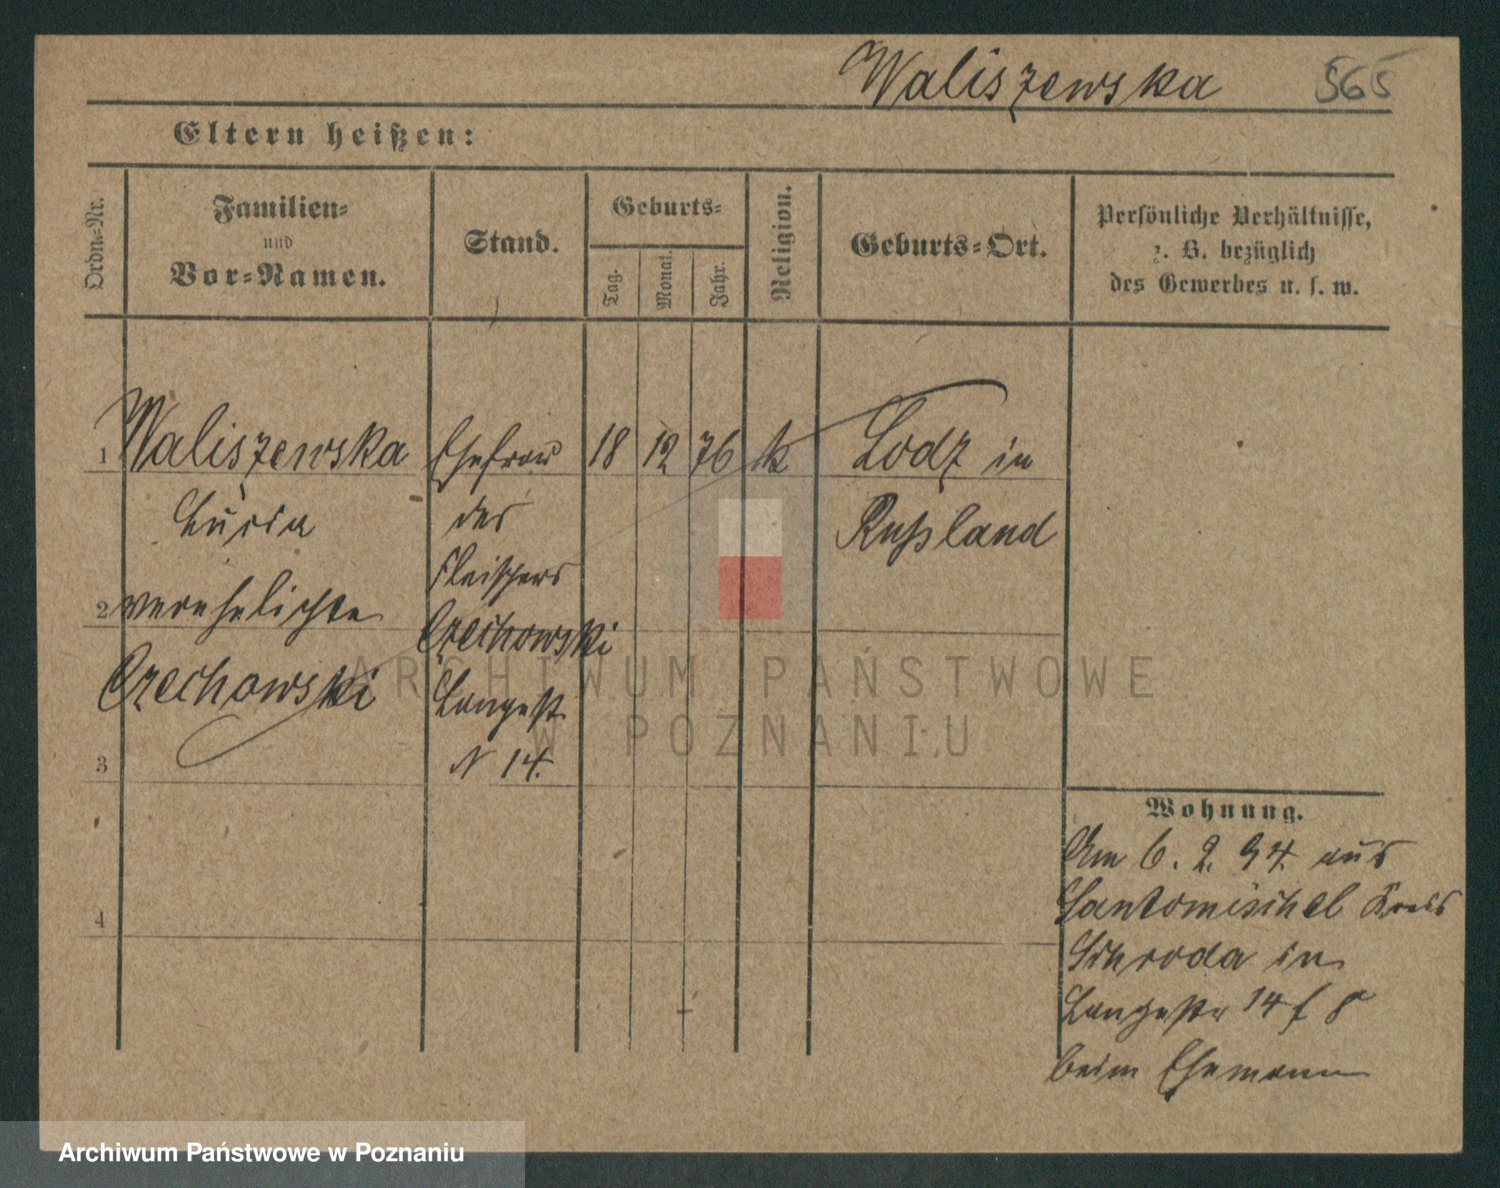 Waliszewska 565
Eltern heißen:
Ordn.-Nr.
Familien-
und
Vor-Namen.
Stand.
Geburts-
Tag.
Monat.
Jahr.
Religion.
Geburts-Ort.
Persönliche Verhältnisse,
z. B. bezüglich
des Gewerbes u. s. w.
1 Waliszewska Ehefrau 18 12 76 k Lodz in
Lucia des Russland
Fleischers
2 verehelichte Orechowski
Orechowski Langestr
N 14.
3
Wohnung.
Am 6. 2. 94. aus
Santomischel Kreis
4
Schroda in
Langestr 14
beim Ehemann
ARCHIWUM PAŃSTWOWE
W POZNANIU
Archiwum Państwowe w Poznaniu